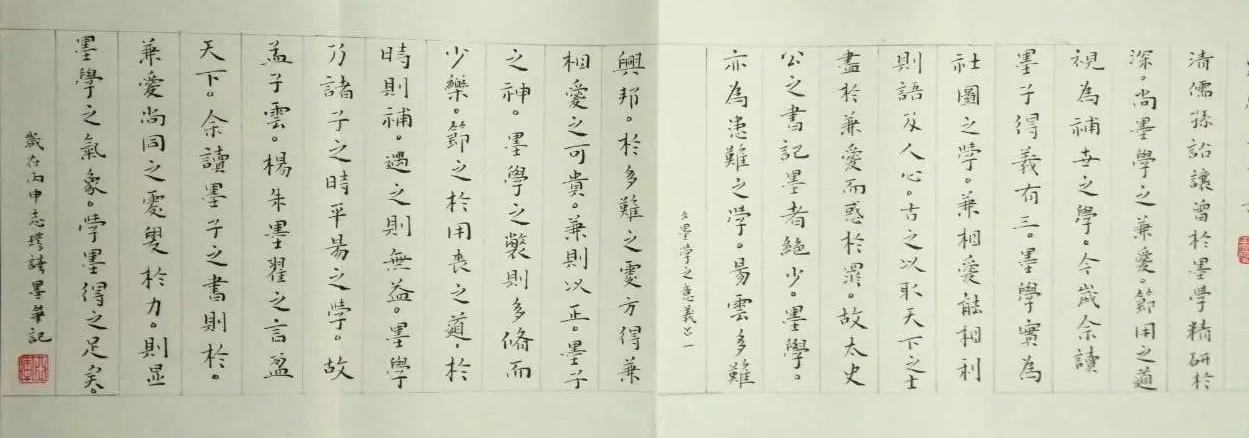 清儒孫詒讓嘗於墨學精研於
深。尚墨學之兼愛。節用之道
視為補世之學。今歲余讀
墨子得義有三。墨學實為
社團之學。兼相愛能相利
則語及人心。古之以取天下之士
盡於兼愛而惑於罪。故太史
公之書記墨者絕少。墨學。
亦為患難之學。易雲多難
墨學之意義
興邦。於多難之處方得兼
相愛之可貴。兼則以正。墨子
之神。墨學之弊則多脩而
少樂。節之於用喪之道，於
時則補。遇之則無益。墨學
乃諸子之時平易之學。故
孟子雲。楊朱墨翟之言盈
天下。余讀墨子之書則於。
兼愛尚同之處與於力。則显
墨學之氣象。學墨得之足矣。
歲在丙申志璞讀墨筆記